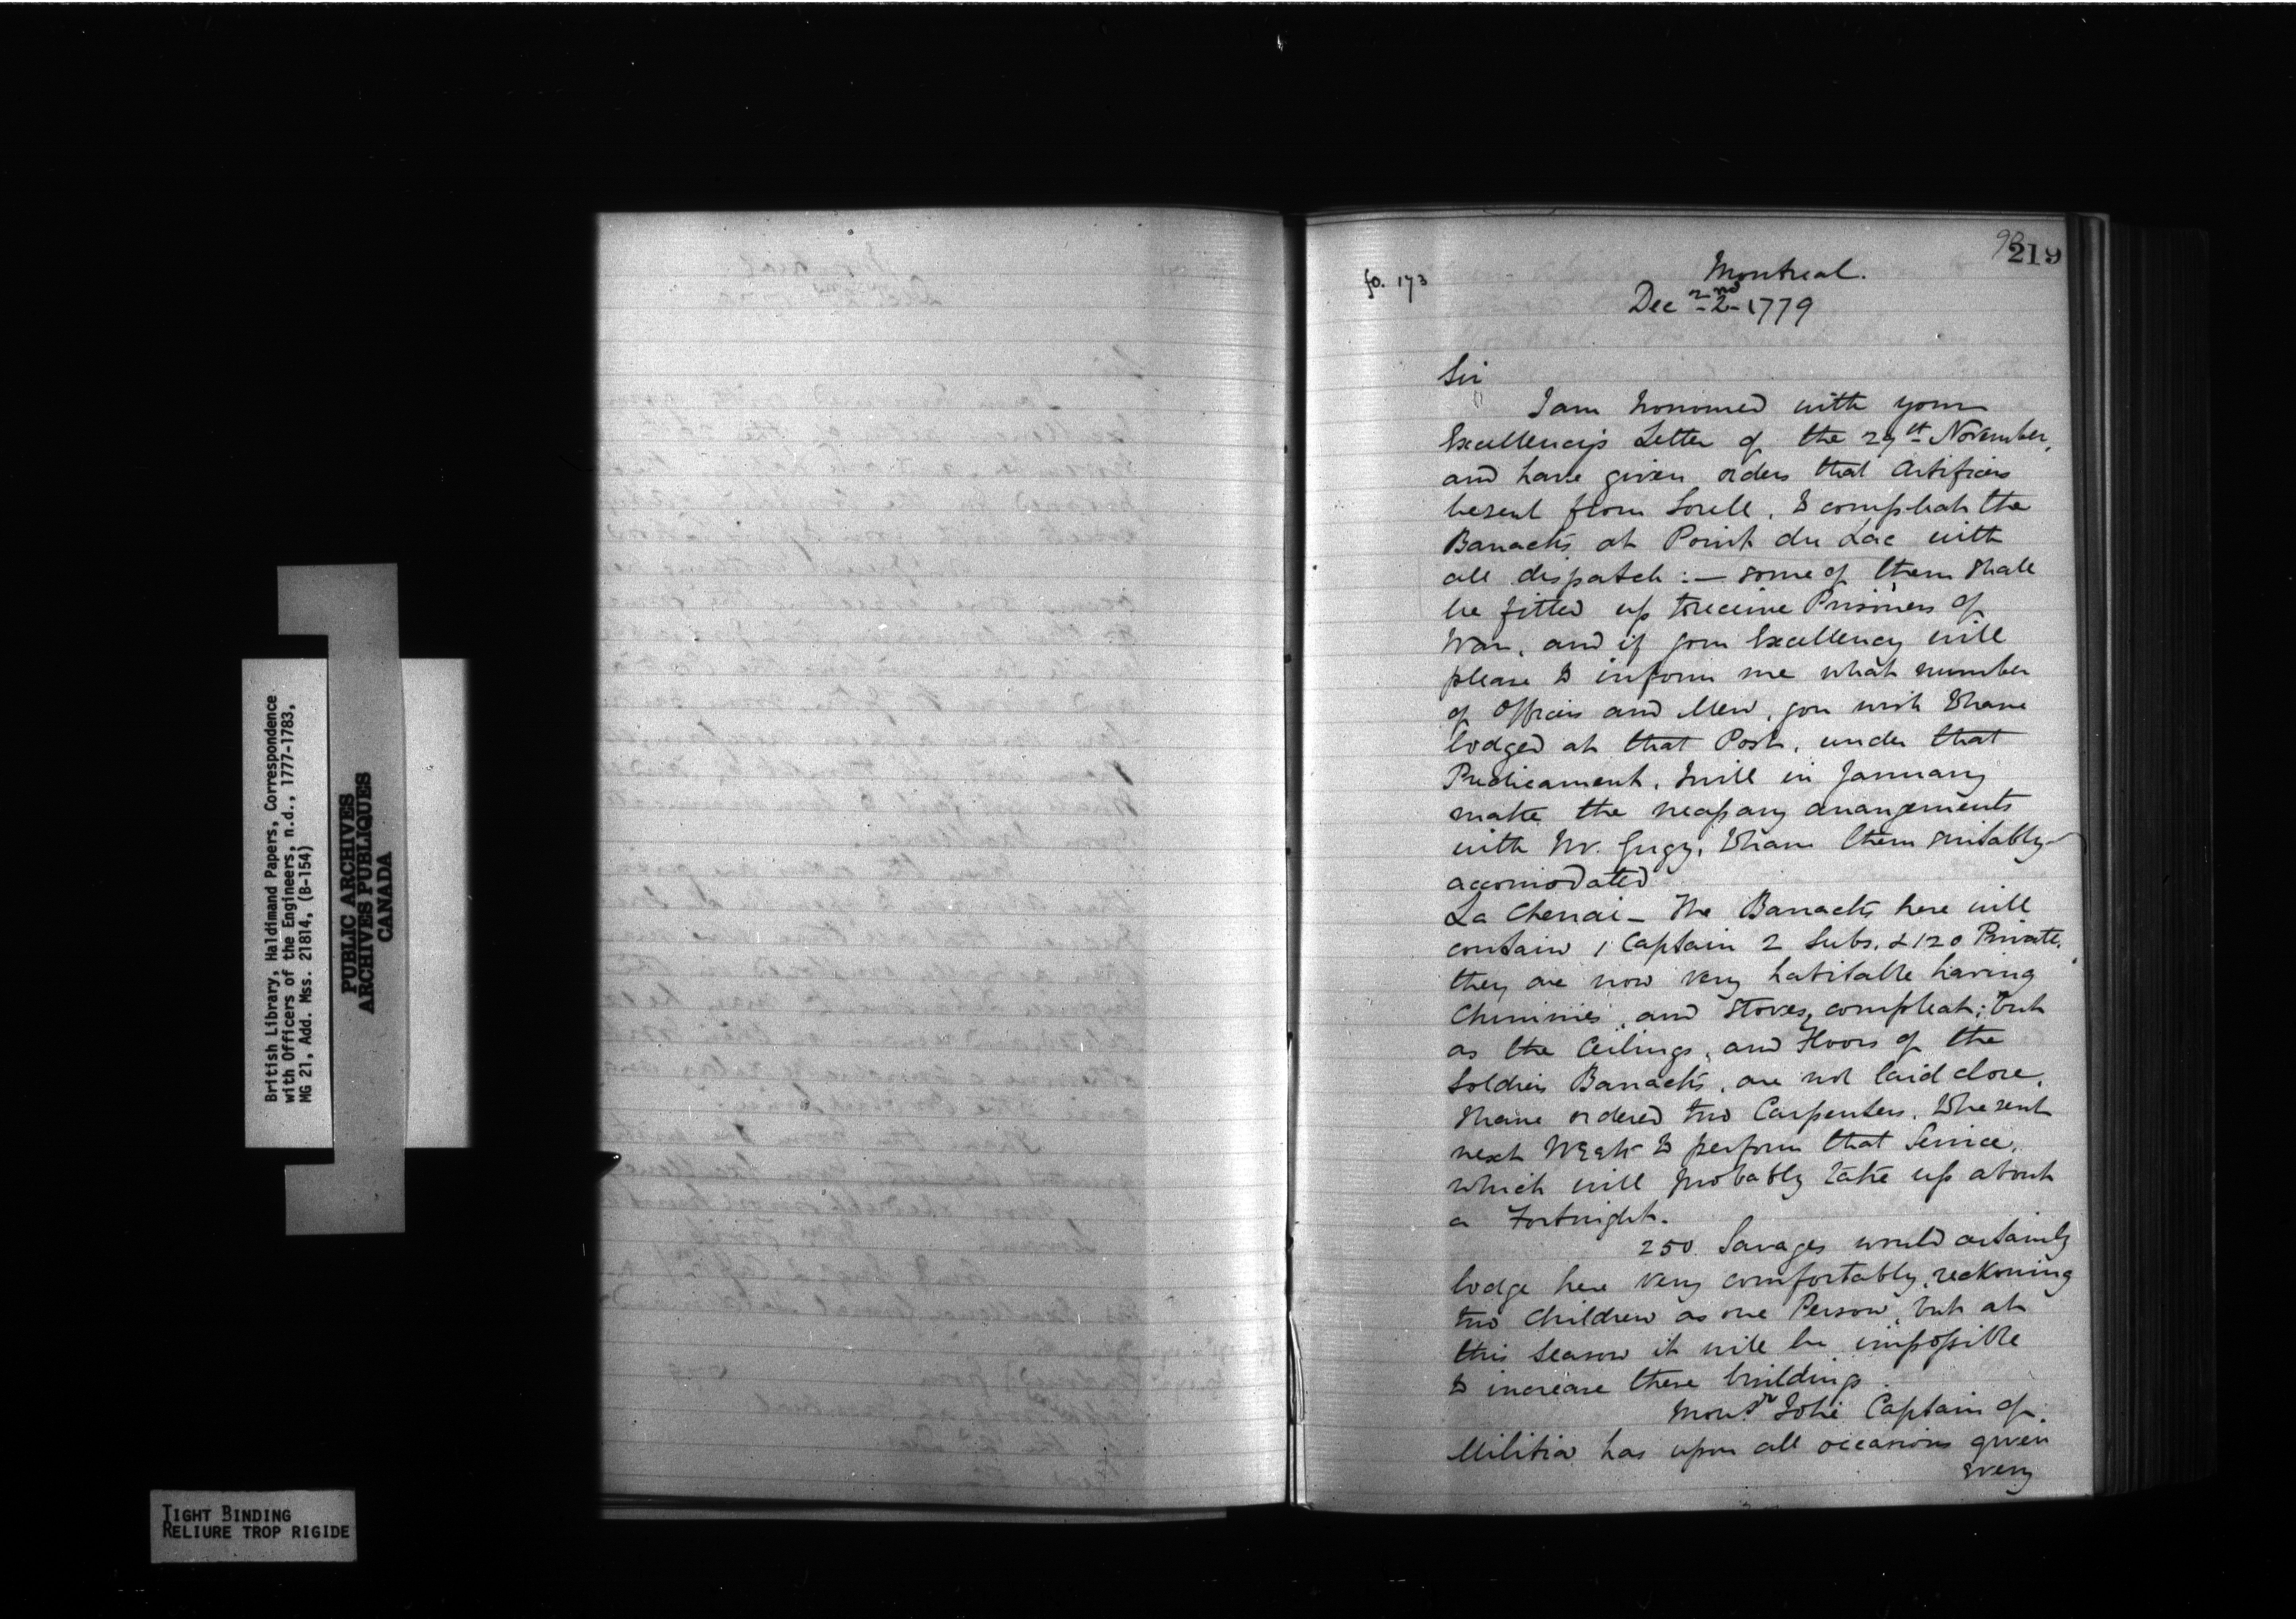 British Library, Haldimand Papers, Correspondence
with Officers of the Engineers, n.d., 1777-1783,
MG 21, Add. Mss. 21814, (B-154)
PUBLIC ARCHIVES
ARCHIVES PUBLIQUES
CANADA
TIGHT BINDING
RELIURE TROP RIGIDE
219
fo. 173
Montreal.
Dec 2nd 1779
Sir
I am honoured with your
Excellency's Letter of the 29th November,
and have given orders that Artificers
be sent from Sorell, to compleat the
Barracks at Point du Lac with
all dispatch :— some of them shall
be fitted up to receive Prisoners of
War, and if your Excellency will
please to inform me what number
of Officers and Men, you wish to have
lodged at that Post, under that
Predicament, I will in January
make the necessary arrangements
with Mr. Gugy, to have them suitably
accomodated
La Chenai — The Barracks here will
contain 1 Captain 2 Subs. & 120 Private.
they are now very habitable having
Chimnies, and Stoves, compleat; but
as the Ceilings, and Floors of the
Soldiers Barracks, are not laid close,
I have ordered two Carpenters, to be sent
next Week to perform that Service,
which will probably take up about
a Fortnight.
250 Savages would certainly
lodge here very comfortably, reckoning
two Children as one Person, but at
this Season it will be impossible
to increase these buildings
Monsr Captain of
Militia has upon all occasions given
every